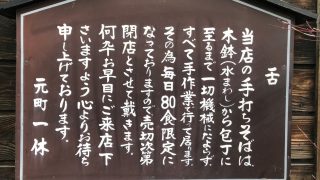 舌
当店の手打ちそばは、
木鉢(水まわし)から包丁に
至るまで一切機械にたよらず
すべて手作業で行て居ります
その為毎日80食限定に
なっておりますので売切次第
閉店とさせて戴きます。
何卒お早目にご来店下
さいますよう心よりお待ち
申し上げております。
元町一休